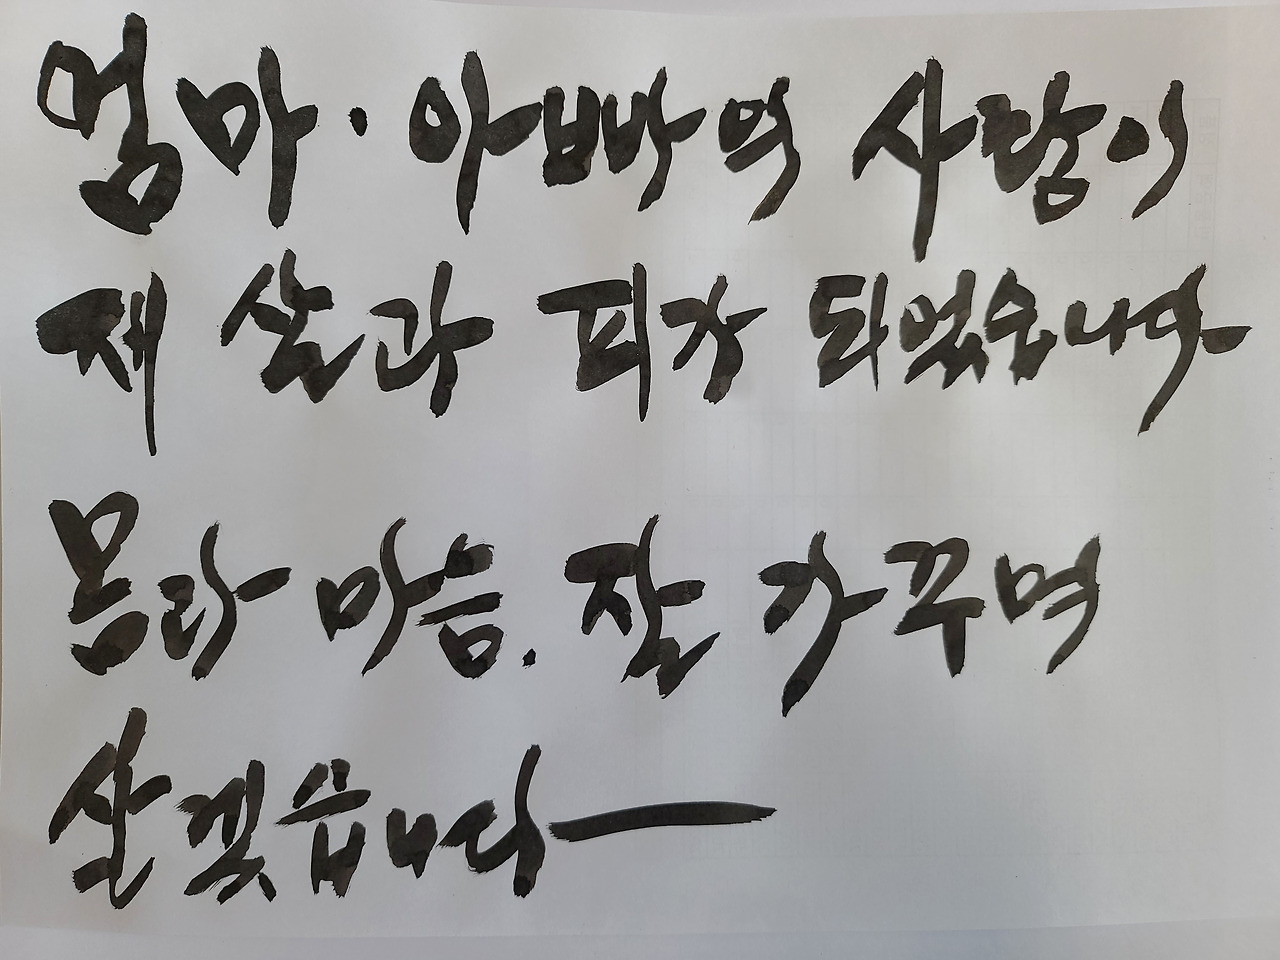 엄마·아빠의 사랑이
제 살과 피가 되었습니다
몸과 마음. 잘 가꾸며
살겠습니다